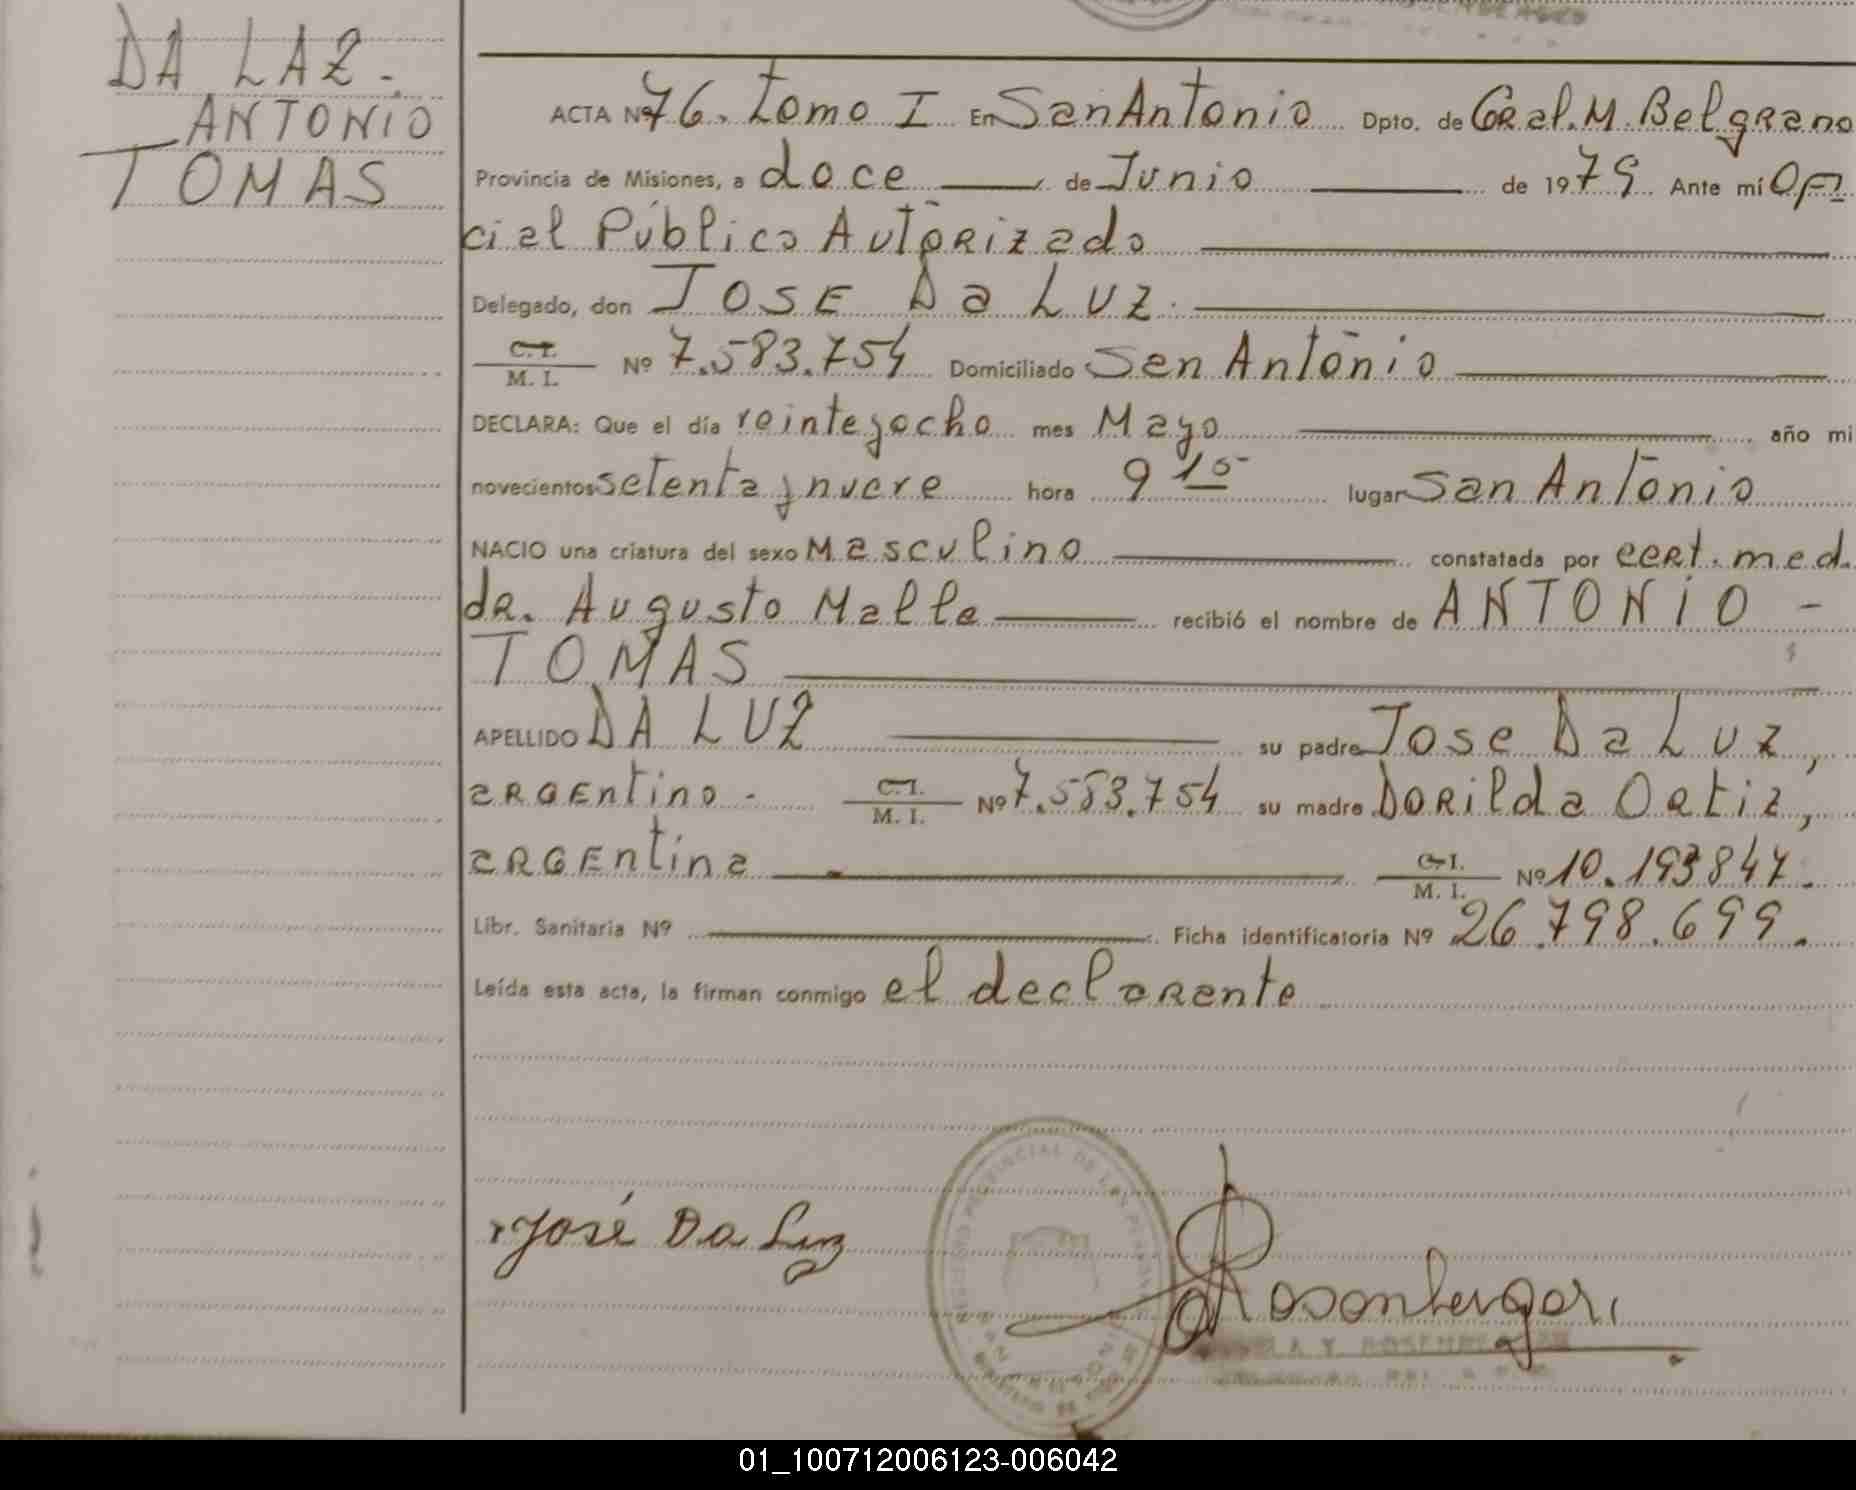 DA LAZ.
ANTONIO
TOMAS
ACTA Nº 76. Tomo I En San Antonio Dpto. de Gral. M. Belgrano
Provincia de Misiones, a doce de Junio de 1979 Ante mí Ofi
cial Público Autorizado
Delegado, don JOSE Da LUZ.
C. I.
M. I. Nº 7.583.754 Domiciliado San Antonio
DECLARA: Que el día veinteyocho mes Mayo año mi
novecientos setenta y nueve hora 9 15 lugar San Antonio
NACIO una criatura del sexo Masculino constatada por cert. med.
dr. Augusto Malle recibió el nombre de ANTONIO -
TOMAS
APELLIDO DA LUZ su padre Jose Da Luz,
argentino - C. I.
M. I. Nº 7.583.754 su madre Dorilda Ortiz,
argentina C. I.
M. I. Nº 10.193847.
Libr. Sanitaria Nº Ficha identificatoria Nº 26.798.699.
Leída esta acta, la firman conmigo el declarante
José Da Luz
REGISTRO PROVINCIAL DE LAS PERSONAS
SAN ANTONIO
Rosenberger
01_100712006123-006042